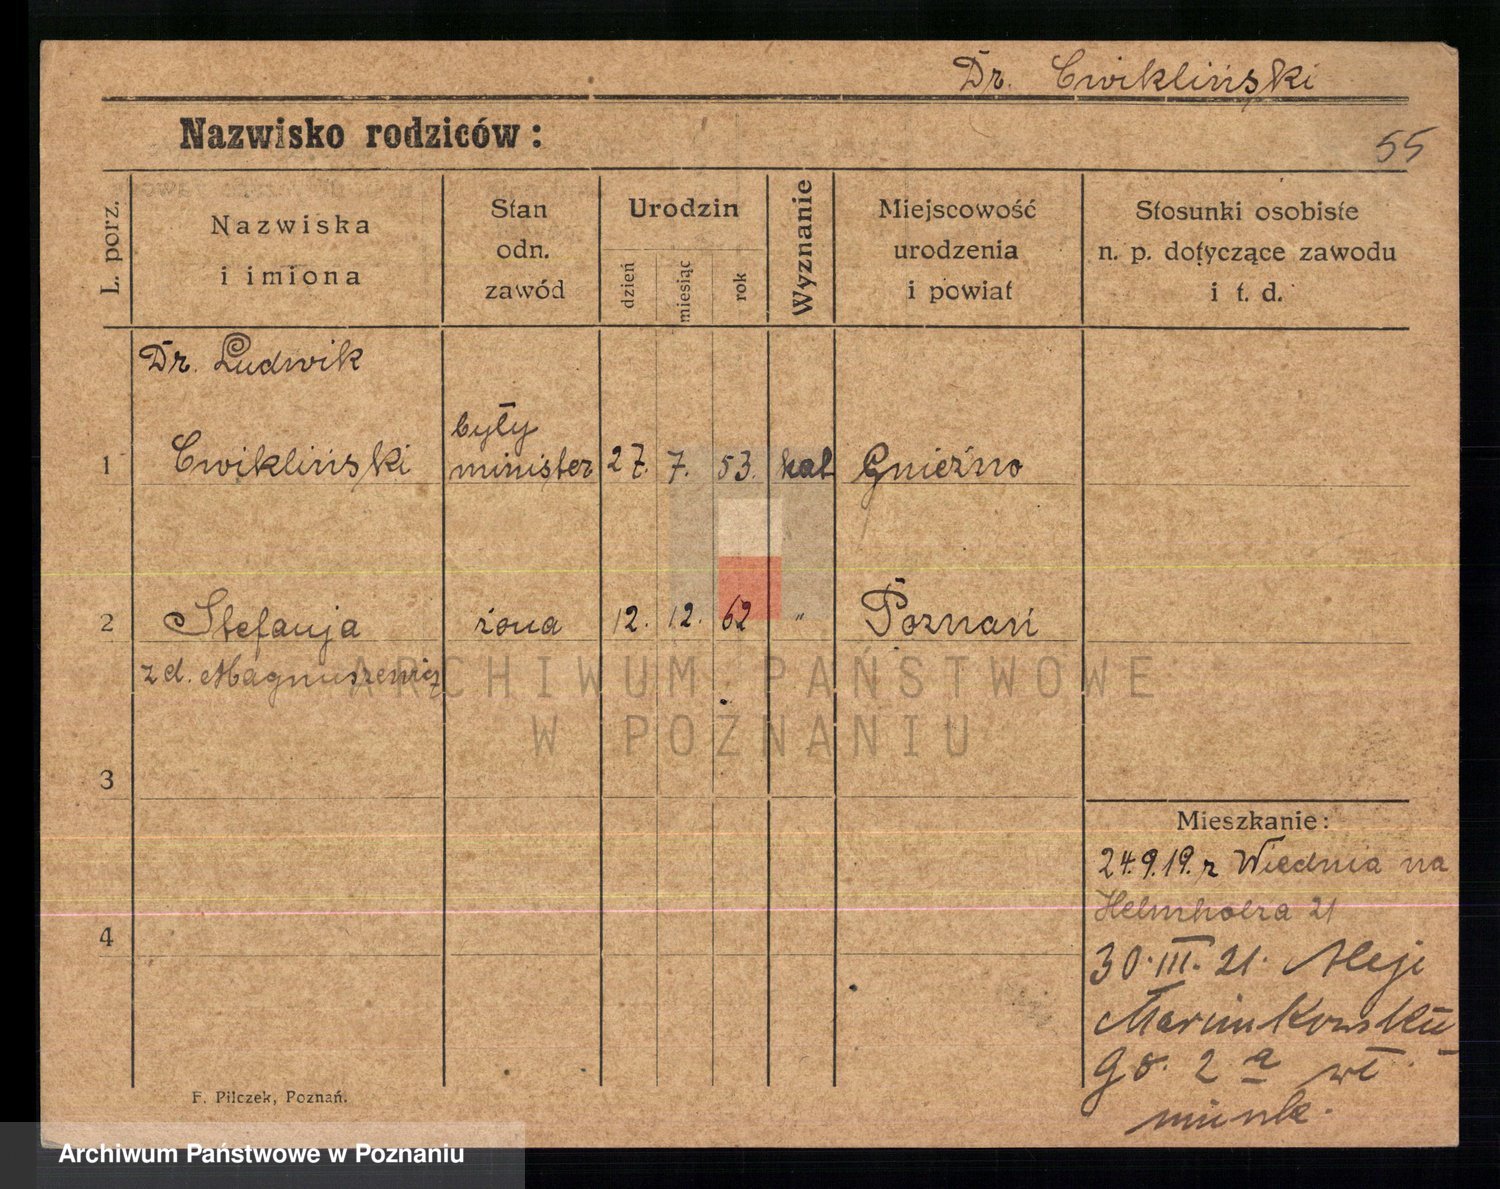 Dr. Ćwikliński
Nazwisko rodziców:
55
L. porz.
Nazwiska
i imiona
Stan
odn.
zawód
Urodzin
dzień
miesiąc
rok
Wyznanie
Miejscowość
urodzenia
i powiat
Stosunki osobiste
n. p. dotyczące zawodu
i t. d.
Dr. Ludwik
1 Ćwikliński były minister 27. 7. 53. kat Gnieźno
2 Stefanja żona 12. 12. 62 " Poznań
z d. Magnuszewicz
ARCHIWUM PAŃSTWOWE
W POZNANIU
3
Mieszkanie:
24.9.19. z Wiednia na
Helmholza 21
4
30.III.21. Aleje
Marcinkowskie
go. 2 a wł
mieszk.
F. Pilczek, Poznań.
Archiwum Państwowe w Poznaniu